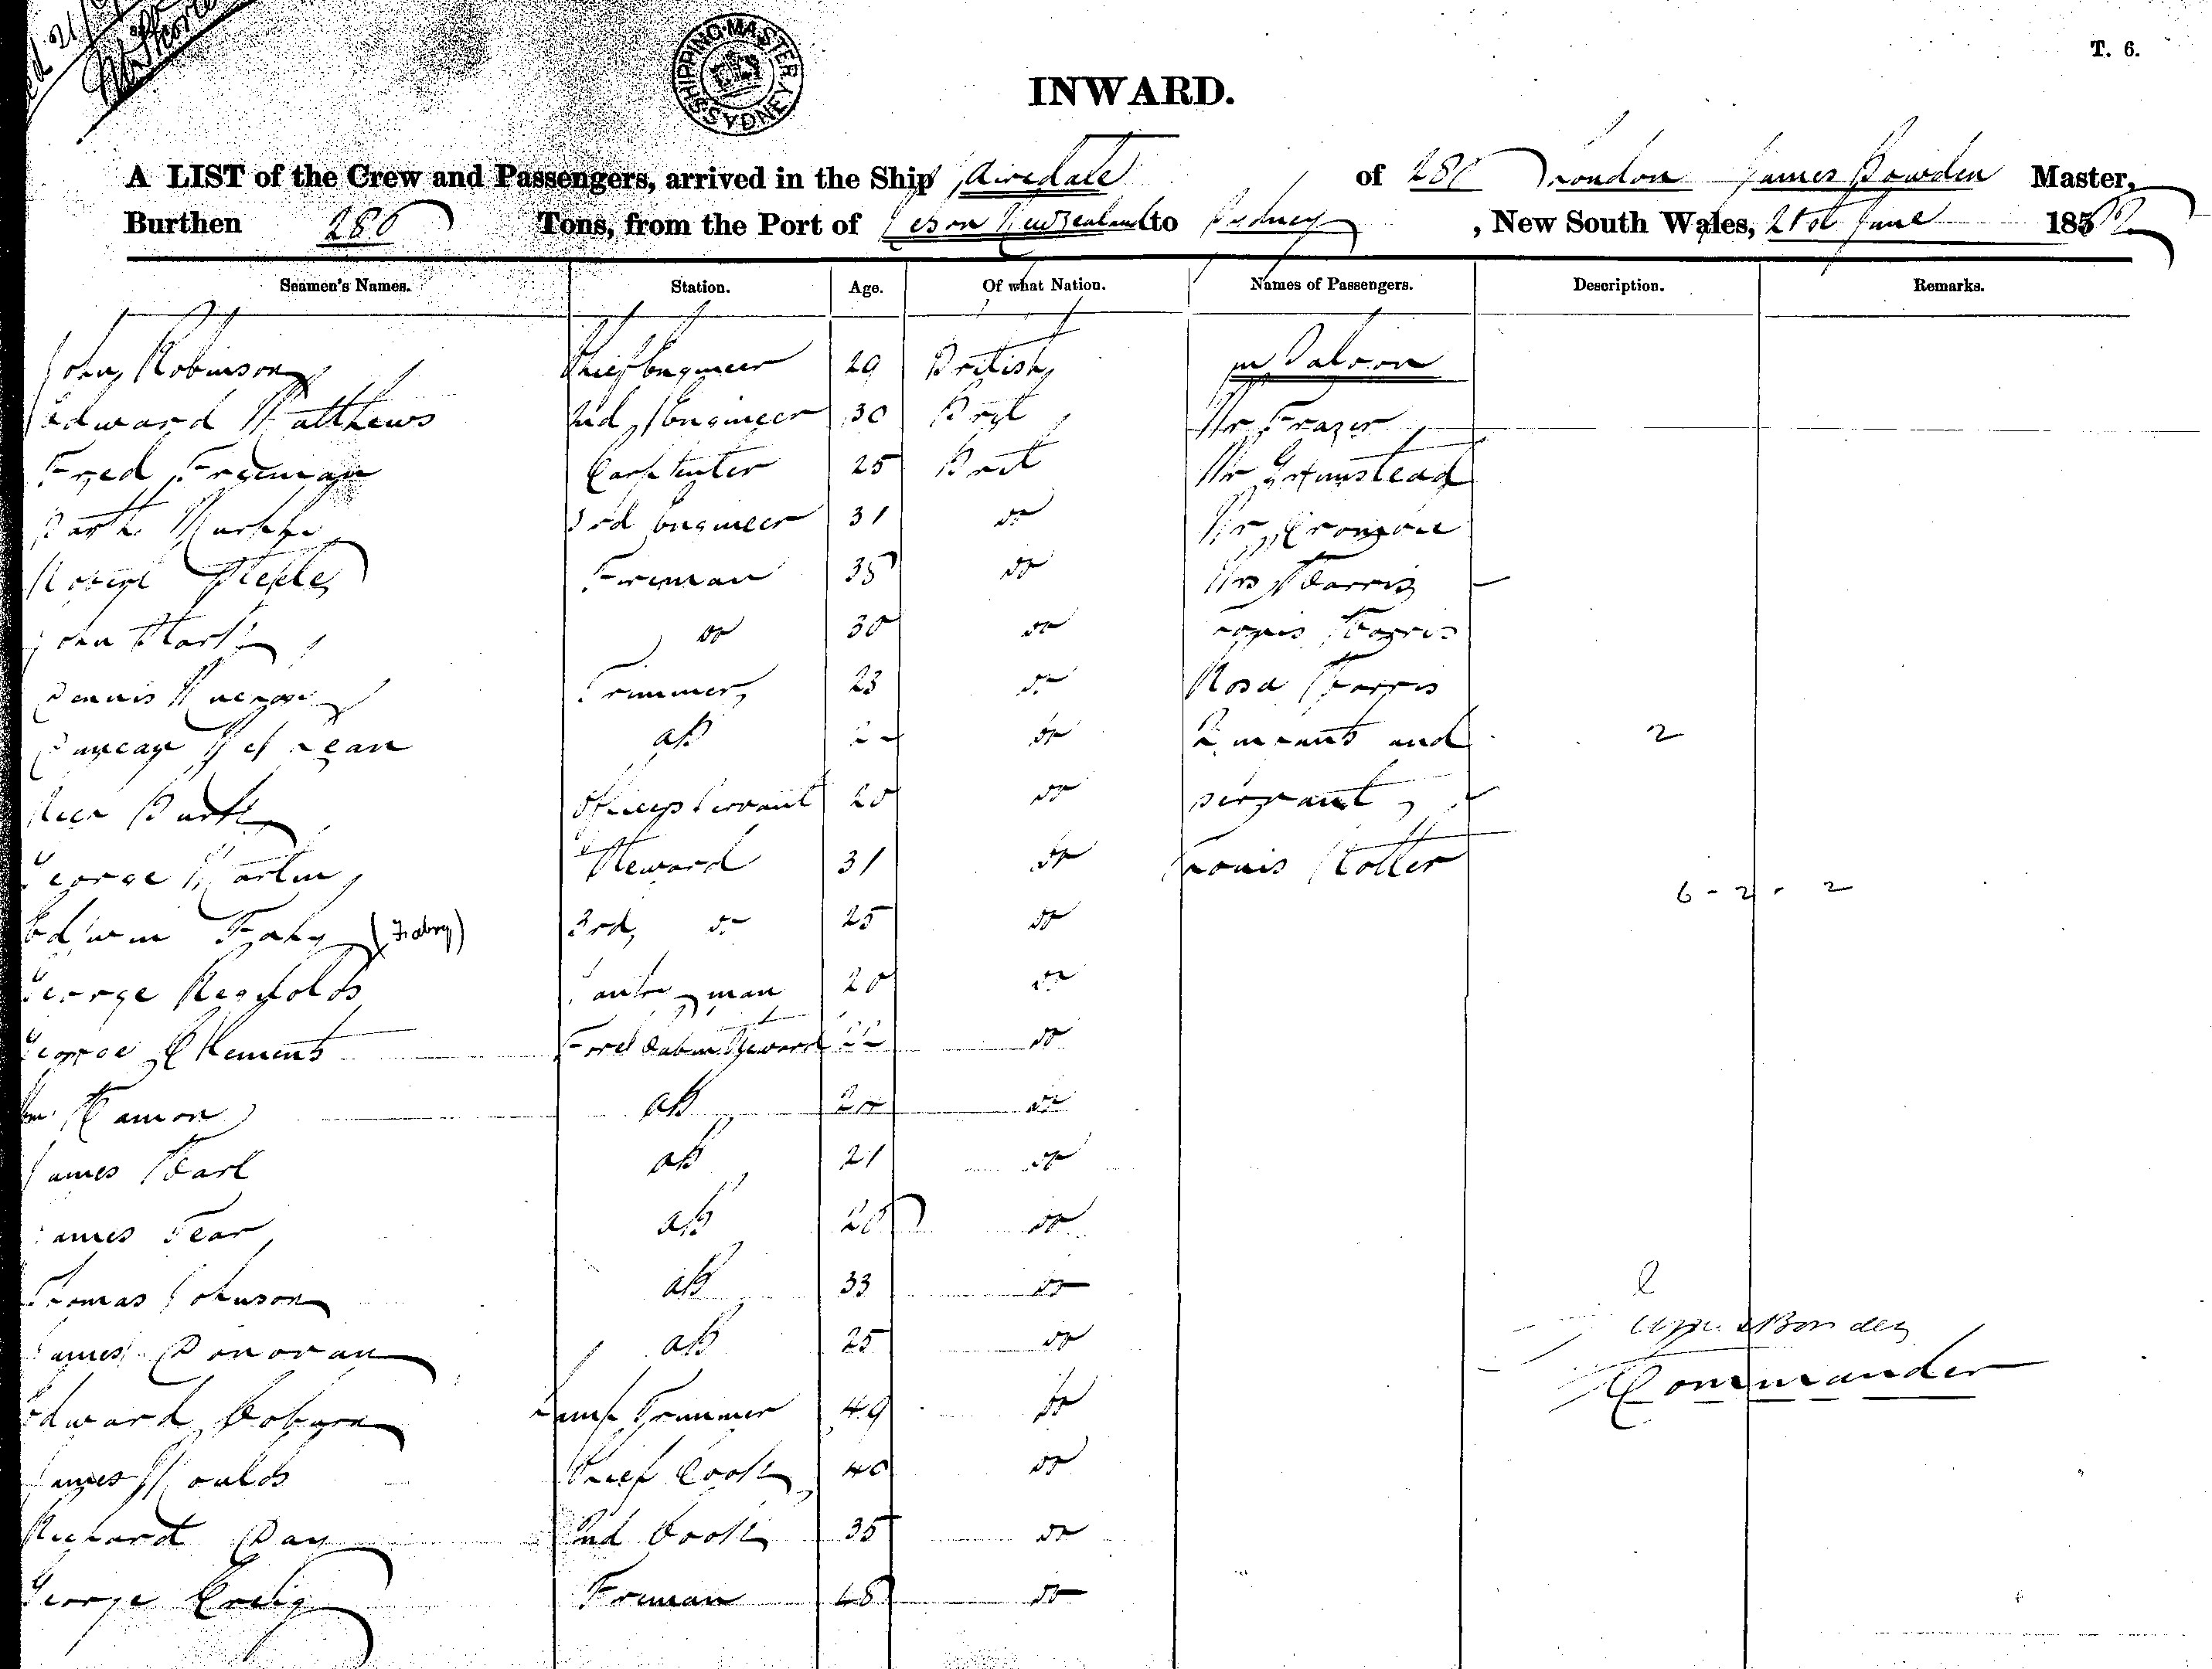 T. 6.
SHIPPING MASTER SYDNEY
INWARD.
A LIST of the Crew and Passengers, arrived in the Ship Airedale of 286 London James Bowden Master,
Burthen 286 Tons, from the Port of New Zealand to Sydney, New South Wales, 21st June 185
Seamen's Names. Station. Age. Of what Nation. Names of Passengers. Description. Remarks.
John Robinson Chief Engineer 29 British in Saloon
Edward Matthews 2nd Engineer 30 Brit Mr Frazer
Fred Freeman Carpenter 25 Brit Mr Grimstead
3rd Engineer 31 do Mr
Robert Steele Fireman 35 do Mrs Harris
John Clark do 30 do Harris
Dennis Trimmer 23 do Rosa Harris
Duncan McLean AB do 2 infants and 2
Burke Officers Servant 20 do servant
George Martin Steward 31 do Louis Kotter
6 - 2 - 2
Edwin Fahy (Fahry) 3rd do 25 do
George Reynolds Pantryman 20 do
George Clements Ford Cabin Steward 22 do
Wm Hamon AB do
James Earl AB 21 do
James Fear AB do
Thomas Johnson AB 33 do
James Donovan AB 25 do
Bowden
Commander
Edward Coburn Lamp Trimmer 49 do
James Moulds Chief Cook 40 do
Richard Day 2nd Cook 35 do
George Craig Fireman 48 do